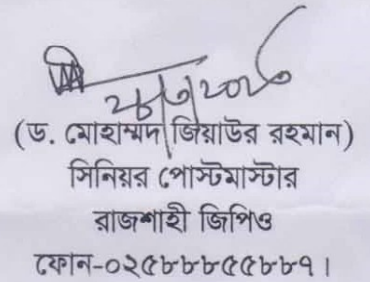 (ড. মোহাম্মদ জিয়াউর রহমান)
সিনিয়র পোস্টমাস্টার
রাজশাহী জিপিও
ফোন-০২৫৮৮৮৫৫৮৮৭।